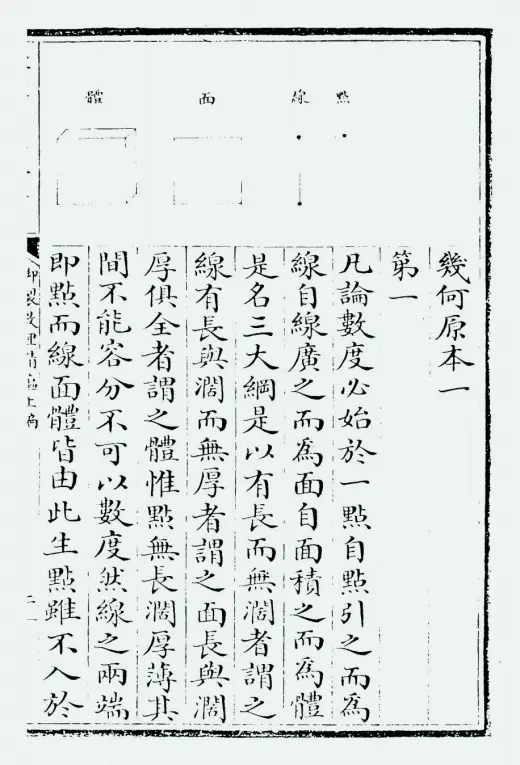 點
線
面
體
幾何原本一
第一
凡論數度必始於一點自點引之而為
線自線廣之而為面自面積之而為體
是名三大綱是以有長而無濶者謂之
線有長與濶而無厚者謂之面長與濶
厚俱全者謂之體惟點無長濶厚薄其
間不能容分不可以數度然線之兩端
即點而線面體皆由此生點雖不入於
御製數理精蘊上編